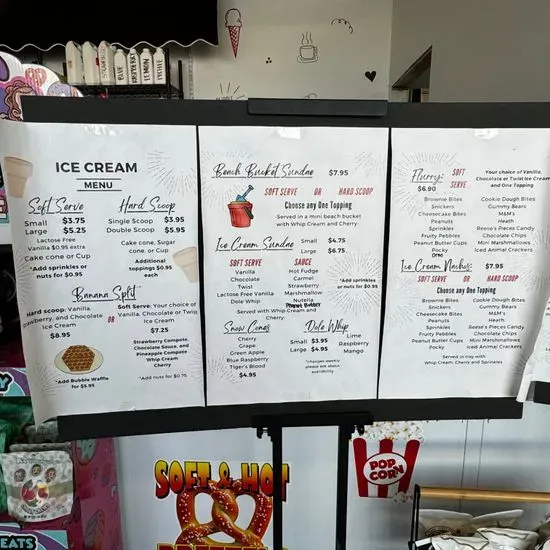 ICE CREAM
MENU
Soft Serve
Small $3.75
Large $5.25
Lactose Free
Vanilla $0.95 extra
Cake cone or Cup
*Add sprinkles or
nuts for $0.95
Hard Scoop
Single Scoop $3.95
Double Scoop $5.95
Cake cone, Sugar
cone, or Cup
Additional
toppings $0.95
each
Banana Split
Hard scoop: Vanilla,
Strawberry, and Chocolate
Ice Cream
$8.95
OR
Soft Serve: Your choice of
Vanilla, Chocolate or Twist
Ice Cream
$7.25
Strawberry Compote,
Chocolate Sauce, and
Pineapple Compote
Whip Cream
Cherry
*Add Bubble Waffle
for $5.95
*Add nuts for $0.75
Beach Bucket Sundae $7.95
SOFT SERVE OR HARD SCOOP
Choose any One Topping
-Served in a mini beach bucket
with Whip Cream and Cherry
Ice Cream Sundae
Small $4.75
Large $6.75
SOFT SERVE
Vanilla
Chocolate
Twist
Lactose Free Vanilla
Dole Whip
SAUCE
Hot Fudge
Carmel
Strawberry
Marshmallow
Nutella
Peanut Butter
*Add sprinkles
or nuts for $0.95
Served with Whip Cream and
Cherry
Snow Cones
Cherry
Grape
Green Apple
Blue Raspberry
Tiger's Blood
$4.95
Dole Whip
Small $3.95
Large $4.95
Lime
Raspberry
Mango
*changes weekly
please ask about
availability
Flurry:
$6.90
SOFT
SERVE
Your choice of Vanilla,
Chocolate or Twist Ice Cream
and One Topping
Brownie Bites
Snickers
Cheesecake Bites
Peanuts
Sprinkles
Fruity Pebbles
Peanut Butter Cups
Pocky
Oreo
Cookie Dough Bites
Gummy Bears
M&M's
Heath
Reese's Pieces Candy
Chocolate Chips
Mini Marshmallows
Iced Animal Crackers
Ice Cream Nachos: $7.95
SOFT SERVE OR HARD SCOOP
Choose any One Topping
Brownie Bites
Snickers
Cheesecake Bites
Peanuts
Sprinkles
Fruity Pebbles
Peanut Butter Cups
Pocky
Cookie Dough Bites
Gummy Bears
M&M's
Heath
Reese's Pieces Candy
Chocolate Chips
Mini Marshmallows
Iced Animal Crackers
Served in tray with
Whip Cream, Cherry and Sprinkles
SOFT & HOT
PRETZELS
POP
CORN
BLUE
LEMON
LYCHEE